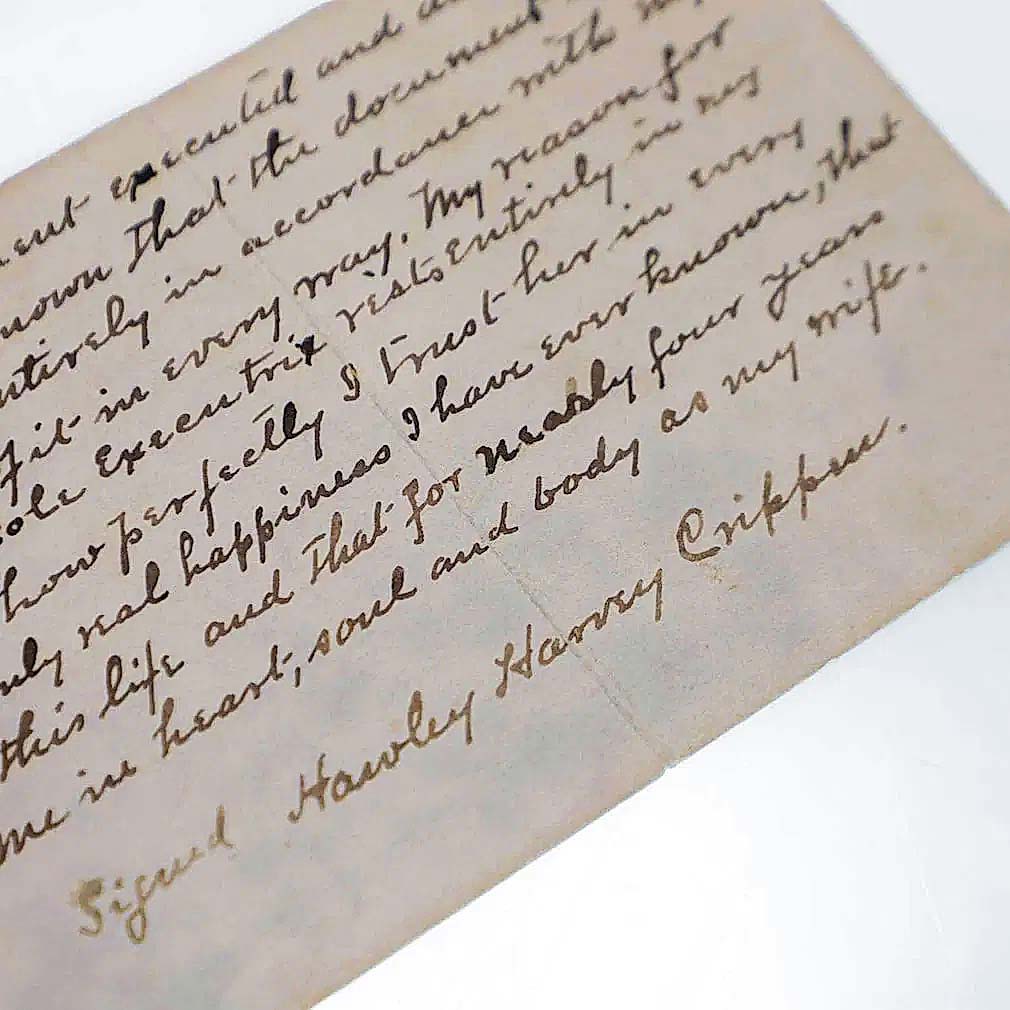 executed and
that the document
entirely in accordance with my
fit in every way. My reason for
sole Executrix rests entirely in my
how perfectly I trust her in every
only real happiness I have ever known, that
this life and that for nearly four years
me in heart, soul and body as my wife.
Signed Hawley Harvey Crippen.